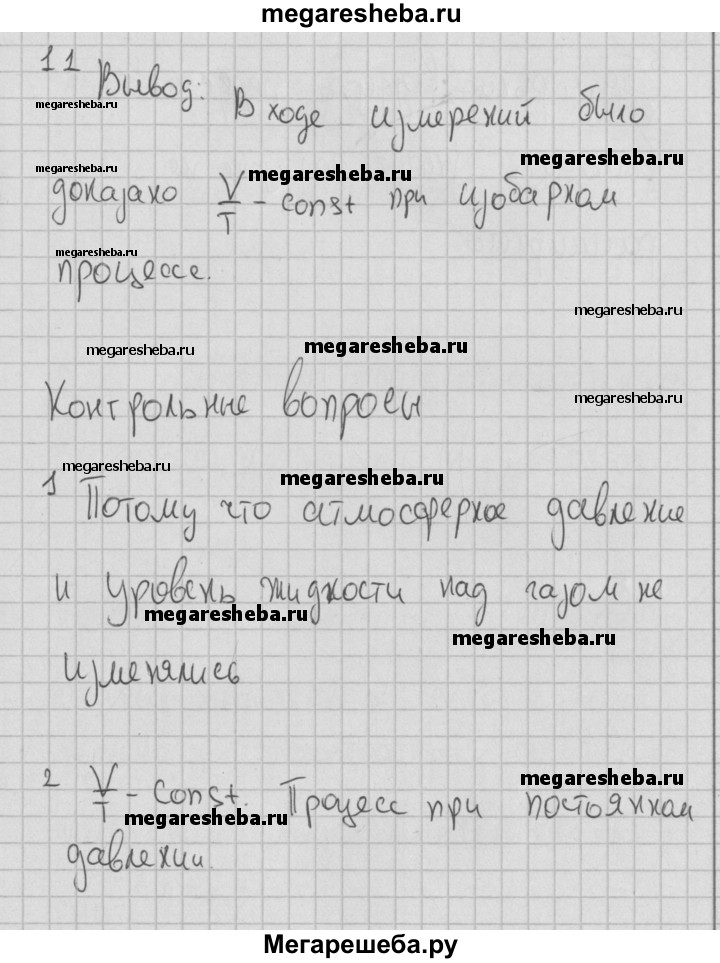 megaresheba.ru
11 Вывод: В ходе измерений было
megaresheba.ru
megaresheba.ru
megaresheba.ru
megaresheba.ru
доказано V/T - const при изобарном
megaresheba.ru
процессе.
megaresheba.ru
megaresheba.ru
megaresheba.ru
megaresheba.ru
Контрольные вопросы
megaresheba.ru
megaresheba.ru
1 Потому что атмосферное давление
и уровень жидкости над газом не
megaresheba.ru
megaresheba.ru
изменялись
2 V/T - const. Процесс при постоянном
megaresheba.ru
megaresheba.ru
давлении.
Мегарешеба.ру